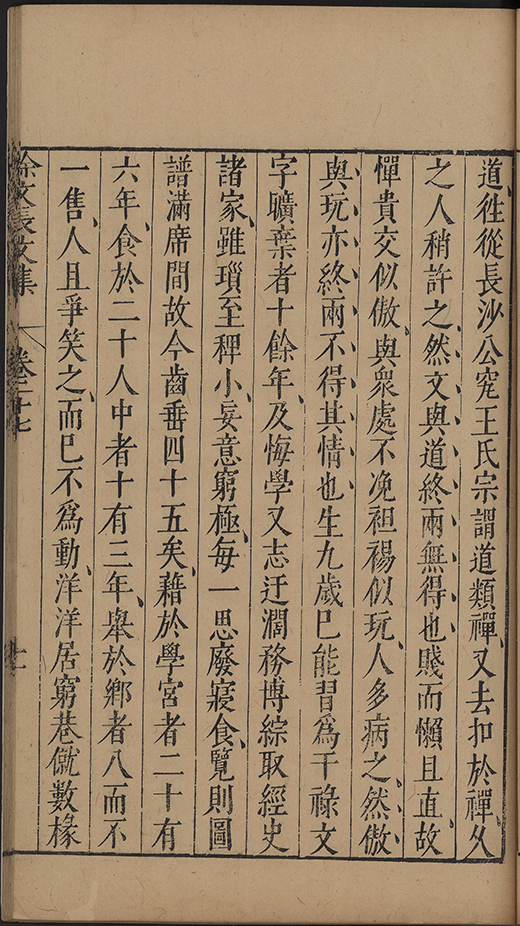 道徃從長沙公究王氏宗謂道類禪又去扣於禪久
之人稍許之然文與道終兩無得也賤而懶且直故
憚貴交似傲與衆處不浼袒裼似玩人多病之然傲
與玩亦終兩不得其情也生九歲已能習爲干祿文
字曠棄者十餘年及悔學又志迂濶務博綜取經史
諸家雖瑣至稗小妄意窮極每一思廢寢食覽則圖
譜滿席間故今齒垂四十五矣藉於學宮者二十有
六年食於二十人中者十有三年舉於鄉者八而不
一售人且爭笑之而已不爲動洋洋居窮巷僦數椽
徐文長文集 卷二十七 十一